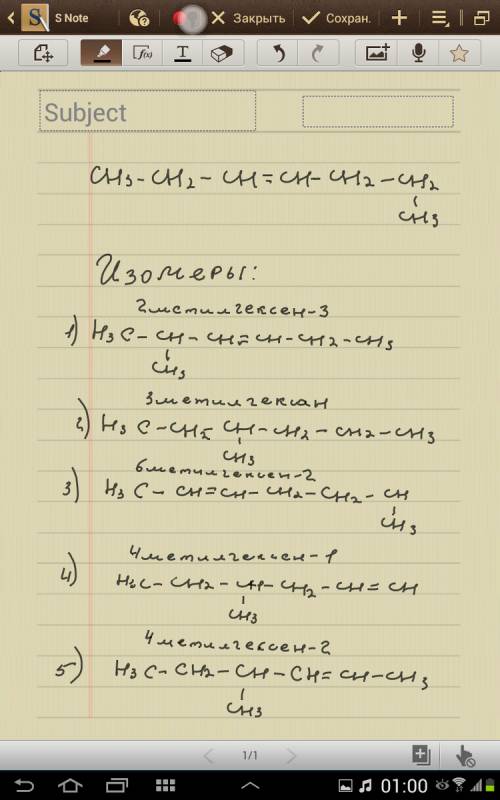 S Note
Закрыть
Сохран.
f(x)
T
Subject
CH3-CH2-CH=CH-CH2-CH2
CH3
Изомеры:
2метилгексен-3
1) H3C-CH-CH=CH-CH2-CH3
CH3
3метилгексан
2) H3C-CH2-CH-CH2-CH2-CH3
CH3
6метилгексен-2
3) H3C-CH=CH-CH2-CH2-CH
CH3
4метилгексен-1
4) H3C-CH2-CH-CH2-CH=CH
CH3
4метилгексен-2
5) H3C-CH2-CH-CH=CH-CH3
CH3
1/1
01:00